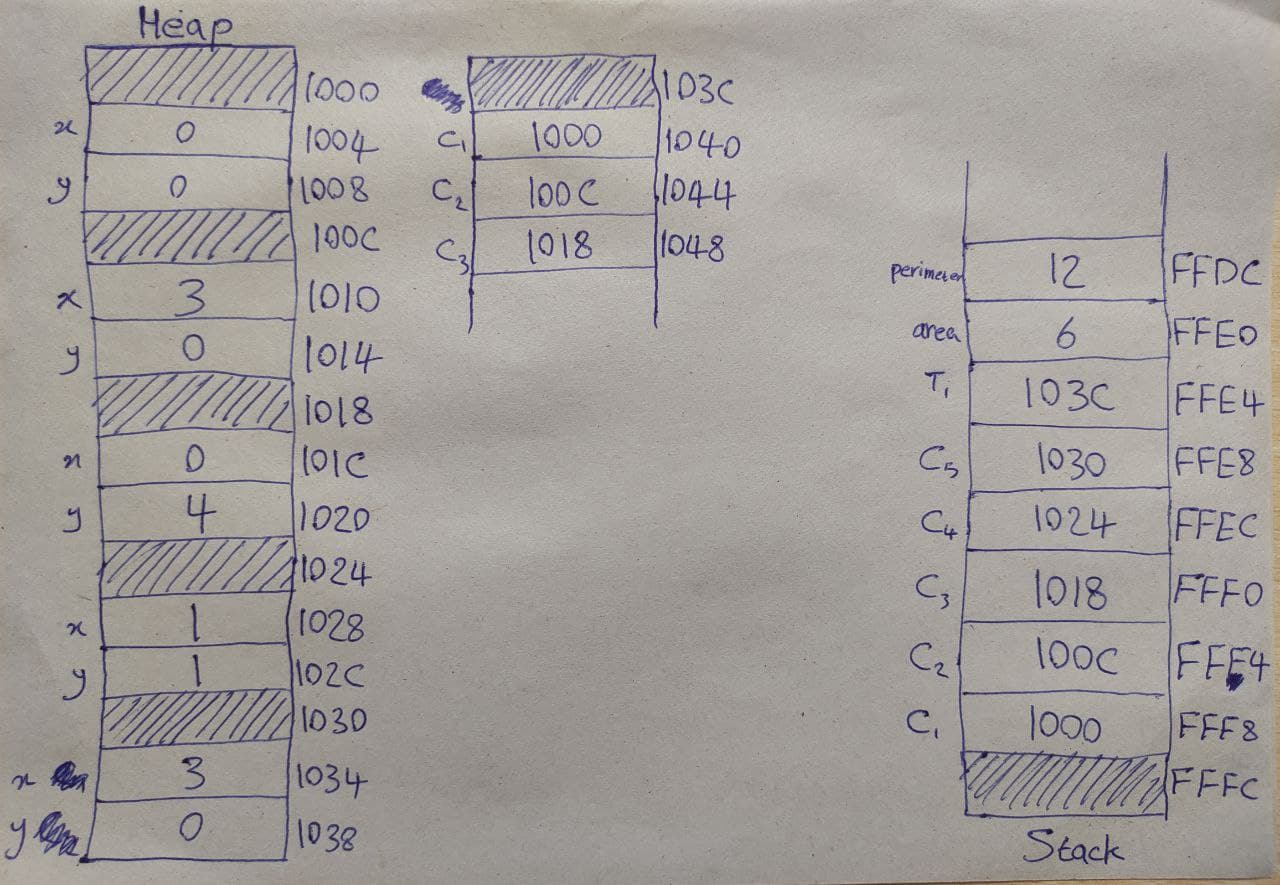 Heap
1000
x 0 1004
y 0 1008
100C
x 3 1010
y 0 1014
1018
x 0 101C
y 4 1020
1024
x 1 1028
y 1 102C
1030
x 3 1034
y 0 1038
103C
C₁ 1000 1040
C₂ 100C 1044
C₃ 1018 1048
perimeter 12 FFDC
area 6 FFE0
T₁ 103C FFE4
C₅ 1030 FFE8
C₄ 1024 FFEC
C₃ 1018 FFF0
C₂ 100C FFF4
C₁ 1000 FFF8
FFFC
Stack